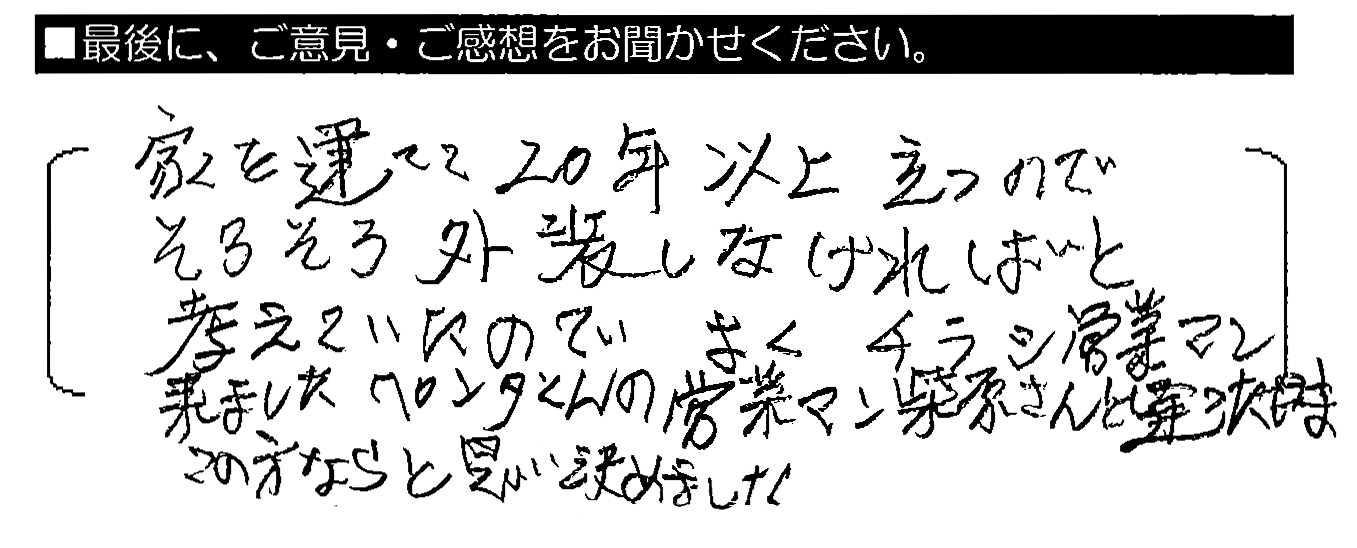 ■最後に、ご意見・ご感想をお聞かせください。
家を建てて20年以上立つので
そろそろ外装しなければと
考えていたので よく チラシ営業マン
来ましたペンタくんの営業マン柴原さんと
この方ならと思い決めました!